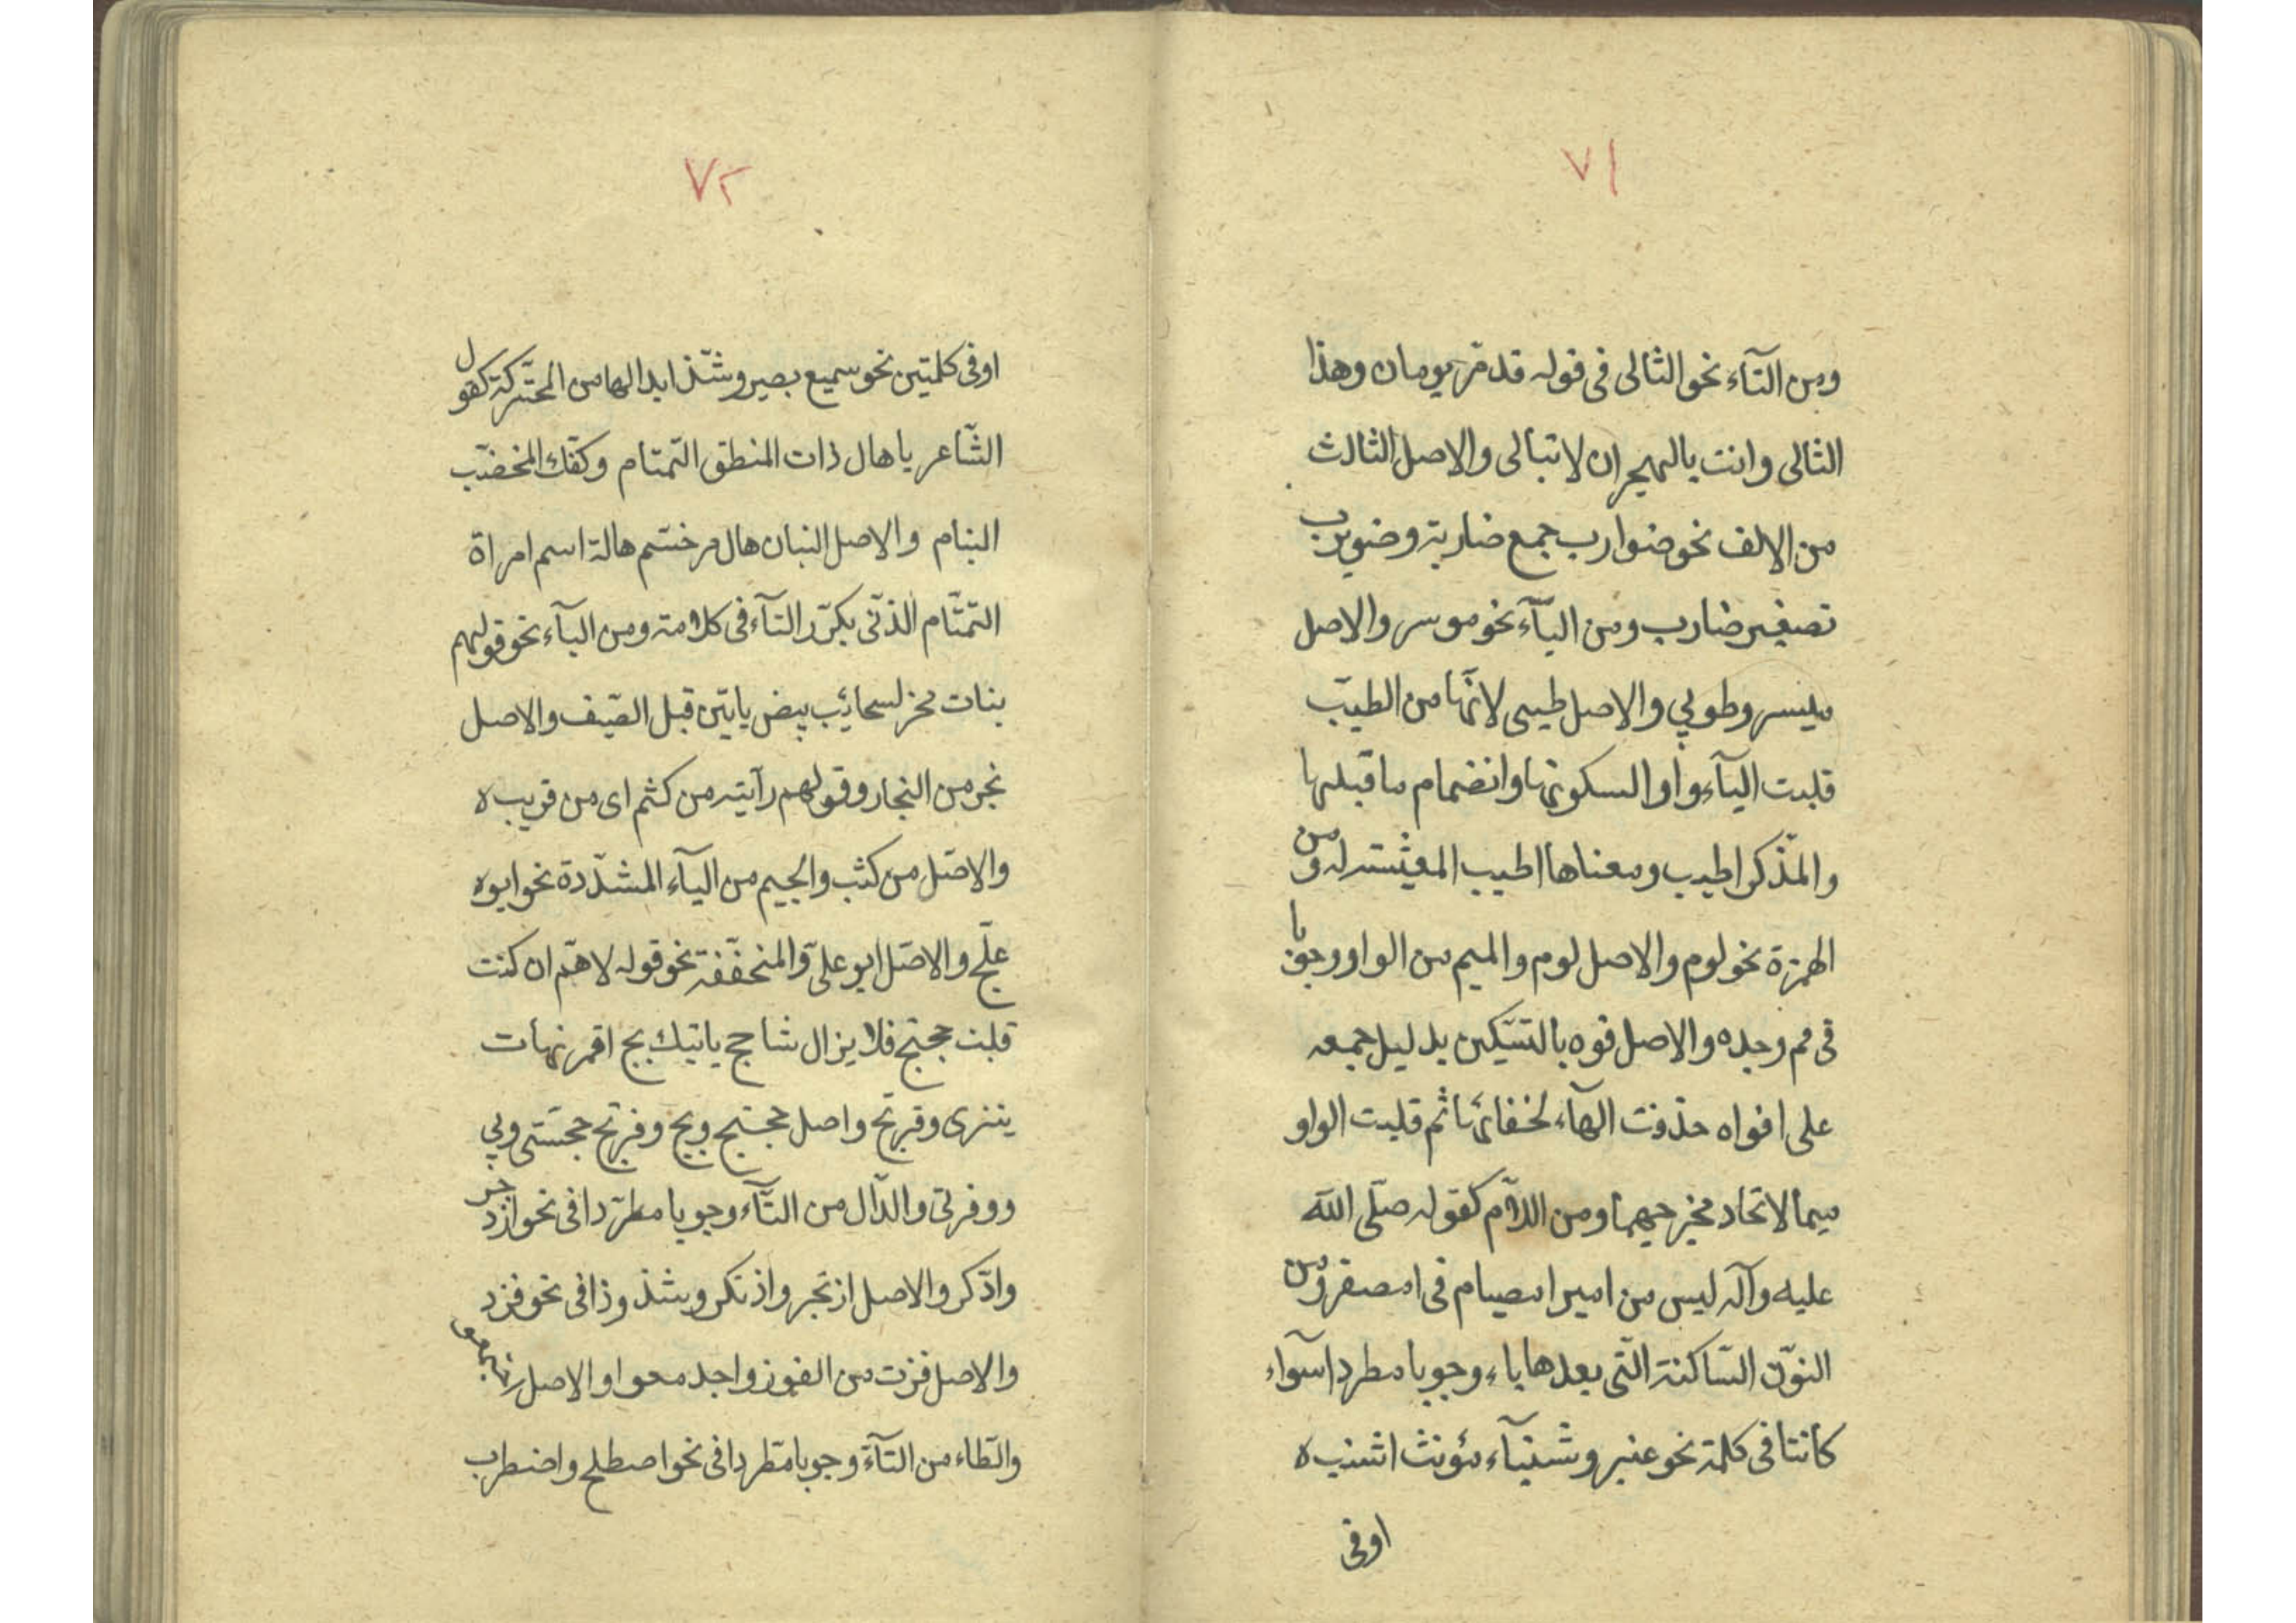 ٧١
ومن التآء نحو الثالى فى قوله قد مر يومان وهذا
الثالى وانت بالهجران لا تبالى والاصل الثالث
من الالف نحو ضوارب جمع ضاربة وضويرب
تصغير ضارب ومن اليآء نحو موسر والاصل
ميسر وطوبي والاصل طيبى لانّها من الطيب
قلبت اليآء واوا لسكونها وانضمام ما قبلها
والمذّكر اطيب ومعناها اطيب المعيشته له ومن
الهمزة نحو لوم والاصل لوم والميم من الواو وجوبا
فى فم وحده والاصل فوه بالتسكين بدليل جمعه
على افواه حذفت الهآء لخفائها ثم قلبت الواو
ميما لاتحاد مخرجيهما ومن اللام كقوله صلّى الله
عليه وآله ليس من امبر امصيام فى امصفر ومن
النوّن السّاكنة التّى بعدها باء وجوبا مطردا سوآء
كانتا فى كلمة نحو عنبر وشنبآء مؤنث اشنب ه
اوفى
٧٢
اوفى كلمتين نحو سميع بصير وشذّ ابدالها من المحتّركة كقول
الشّاعر يا هال ذات المنطق التّمتام وكفّك المخضّب
البنام والاصل البنان هال مرخّم هالة اسم امراة
التّمتّام الذّى يكرّر التآء فى كلامه ومن البآء نحو قولهم
بنات مخر لسحائب بيض ياتين قبل الصّيف والاصل
بخر من البخار وقولهم رآيته من كثم اى من قريب ه
والاصّل من كثب والجيم من اليآء المشدّدة نحو ابوه
علّج والاصّل ابو علىّ والمنخفّفة نحو قوله لا همّ ان كنت
قلبت حجتج فلا يزال شاحج ياتيك بج اقمر نهات
ينزى وفرتج واصل حجتج وبج وفرتج حجتى وبي
ووفرتى والدّال من التّآء وجوبا مطرّدا فى نحو ازدجر
وادّكر والاصل ازتجر واذتكر وشذوذا فى نحو فزد
والاصل فزت من الفوز واجدمعوا والاصل اجتمعوا
والطّاء من التآء وجوبا مطّردا فى نحو اصطلح واضطرب